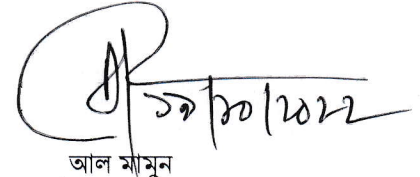 ১৯/১০/২০২২
আল মামুন